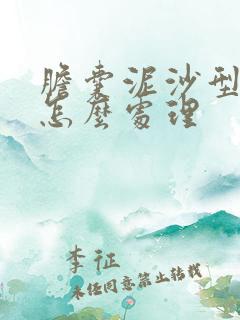 膽囊泥沙型
怎麼處理
李征
未经同意禁止转载